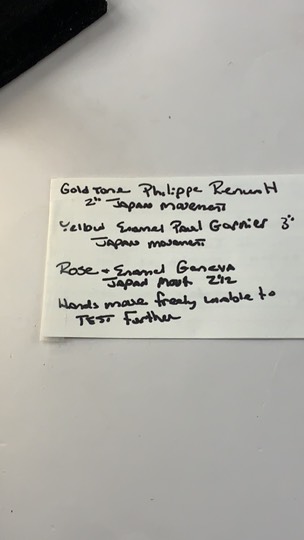 Gold Tone Philippe Renush
2" Japan movement
Yellow Enamel Paul Garnier 3"
Japan movement
Rose + Enamel Geneva
Japan Movt 2 1/2
Hands move freely unable to
TEST Further